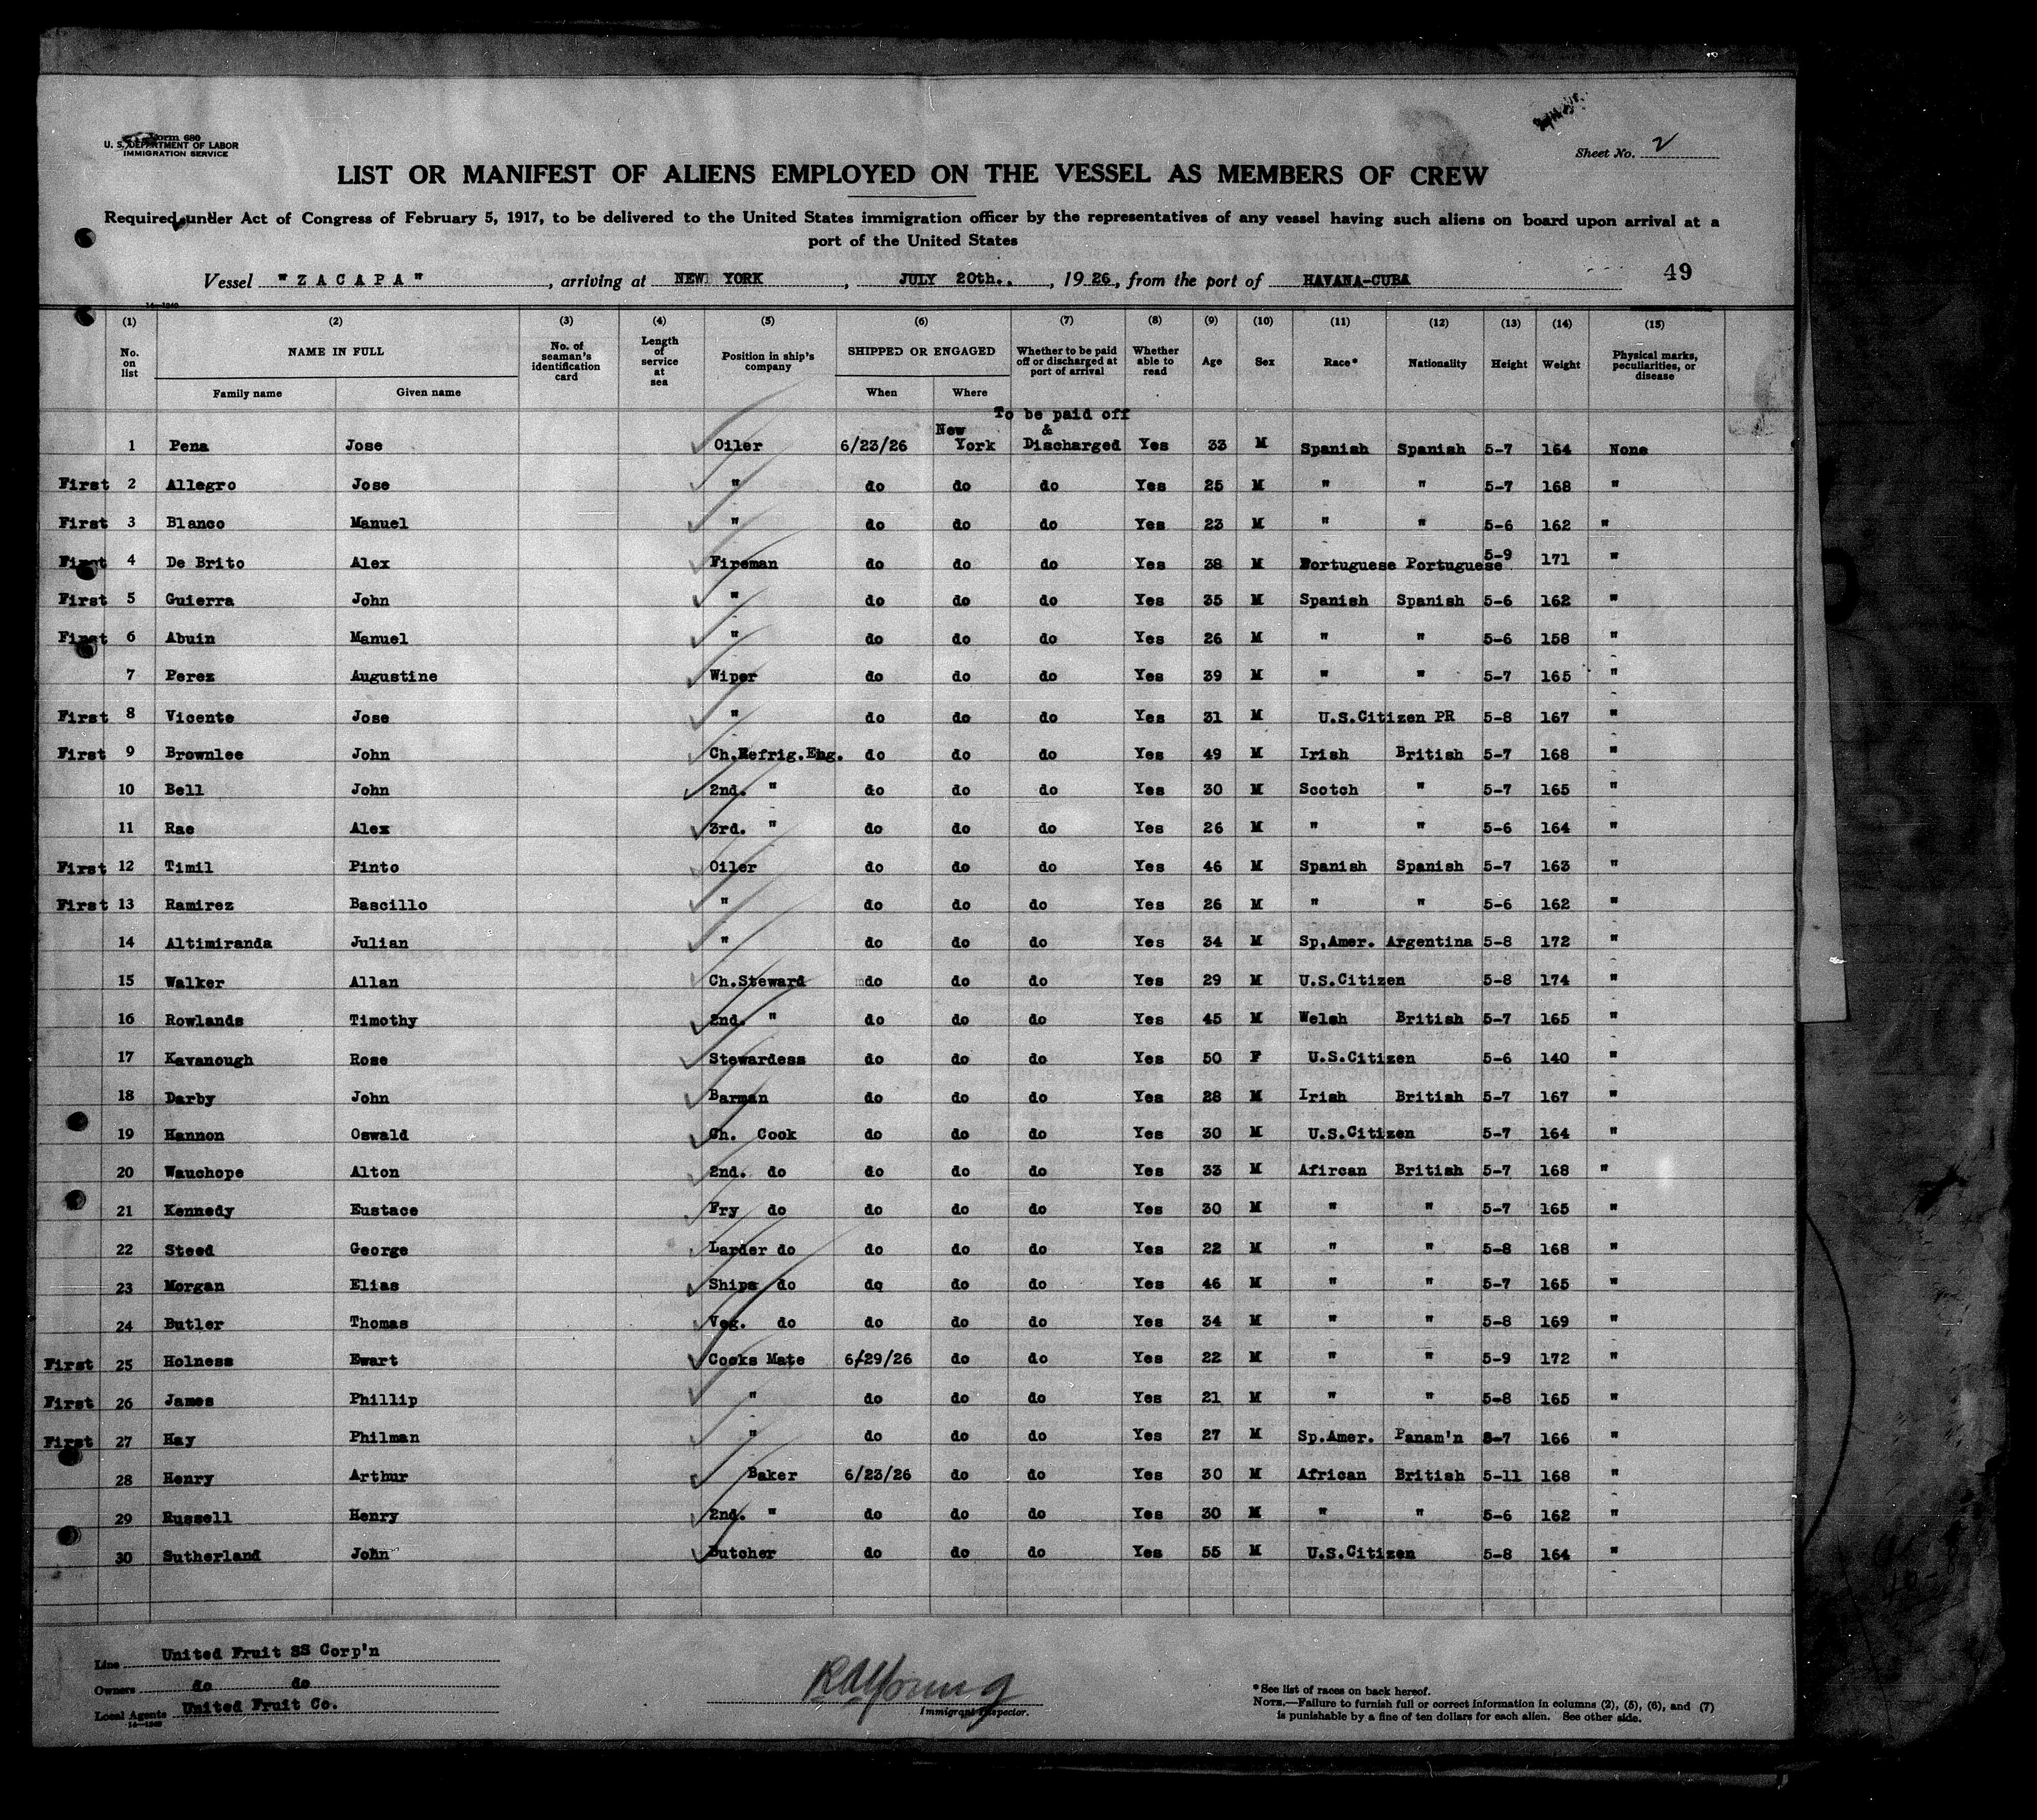 Form 680
U. S. DEPARTMENT OF LABOR
IMMIGRATION SERVICE
Sheet No. 2
LIST OR MANIFEST OF ALIENS EMPLOYED ON THE VESSEL AS MEMBERS OF CREW
Required under Act of Congress of February 5, 1917, to be delivered to the United States immigration officer by the representatives of any vessel having such aliens on board upon arrival at a
port of the United States
Vessel "ZACAPA", arriving at NEW YORK, JULY 20th., 1926, from the port of HAVANA-CUBA 49
(1) (2) (3) (4) (5) (6) (7) (8) (9) (10) (11) (12) (13) (14) (15)
No. on list NAME IN FULL Family name Given name No. of seaman's identification card Length of service at sea Position in ship's company SHIPPED OR ENGAGED When Where Whether to be paid off or discharged at port of arrival Whether able to read Age Sex Race* Nationality Height Weight Physical marks, peculiarities, or disease
To be paid off
New &
1 Pena Jose Oiler 6/23/26 York Discharged Yes 33 M Spanish Spanish 5-7 164 None
First 2 Allegro Jose " do do do Yes 25 M " " 5-7 168 "
First 3 Blanco Manuel " do do do Yes 23 M " " 5-6 162 "
First 4 De Brito Alex Fireman do do do Yes 38 M Portuguese Portuguese 5-9 171 "
First 5 Guierra John " do do do Yes 35 M Spanish Spanish 5-6 162 "
First 6 Abuin Manuel " do do do Yes 26 M " " 5-6 158 "
7 Perez Augustine Wiper do do do Yes 39 M " " 5-7 165 "
First 8 Vicente Jose " do do do Yes 31 M U.S.Citizen PR 5-8 167 "
First 9 Brownlee John Ch.Refrig.Eng. do do do Yes 49 M Irish British 5-7 168 "
10 Bell John 2nd. " do do do Yes 30 M Scotch " 5-7 165 "
11 Rae Alex 3rd. " do do do Yes 26 M " " 5-6 164 "
First 12 Timil Pinto Oiler do do do Yes 46 M Spanish Spanish 5-7 163 "
First 13 Ramirez Bascillo " do do do Yes 26 M " " 5-6 162 "
14 Altimiranda Julian " do do do Yes 34 M Sp.Amer. Argentina 5-8 172 "
15 Walker Allan Ch.Steward do do do Yes 29 M U.S.Citizen 5-8 174 "
16 Rowlands Timothy 2nd. " do do do Yes 45 M Welsh British 5-7 165 "
17 Kavanough Rose Stewardess do do do Yes 50 F U.S.Citizen 5-6 140 "
18 Darby John Barman do do do Yes 28 M Irish British 5-7 167 "
19 Hannon Oswald Ch. Cook do do do Yes 30 M U.S.Citizen 5-7 164 "
20 Wauchope Alton 2nd. do do do do Yes 33 M Afircan British 5-7 168 "
21 Kennedy Eustace Fry do do do do Yes 30 M " " 5-7 165 "
22 Steed George Larder do do do do Yes 22 M " " 5-8 168 "
23 Morgan Elias Ships do do do do Yes 46 M " " 5-7 165 "
24 Butler Thomas Veg. do do do do Yes 34 M " " 5-8 169 "
First 25 Holness Ewart Cooks Mate 6/29/26 do do Yes 22 M " " 5-9 172 "
First 26 James Phillip " do do do Yes 21 M " " 5-8 165 "
First 27 Hay Philman " do do do Yes 27 M Sp.Amer. Panam'n 5-7 166 "
28 Henry Arthur Baker 6/23/26 do do Yes 30 M African British 5-11 168 "
29 Russell Henry 2nd. " do do do Yes 30 M " " 5-6 162 "
30 Sutherland John Butcher do do do Yes 55 M U.S.Citizen 5-8 164 "
Line United Fruit SS Corp'n
Owners do do
Local Agents United Fruit Co.
Immigrant Inspector.
*See list of races on back hereof.
NOTE.—Failure to furnish full or correct information in columns (2), (5), (6), and (7)
is punishable by a fine of ten dollars for each alien. See other side.